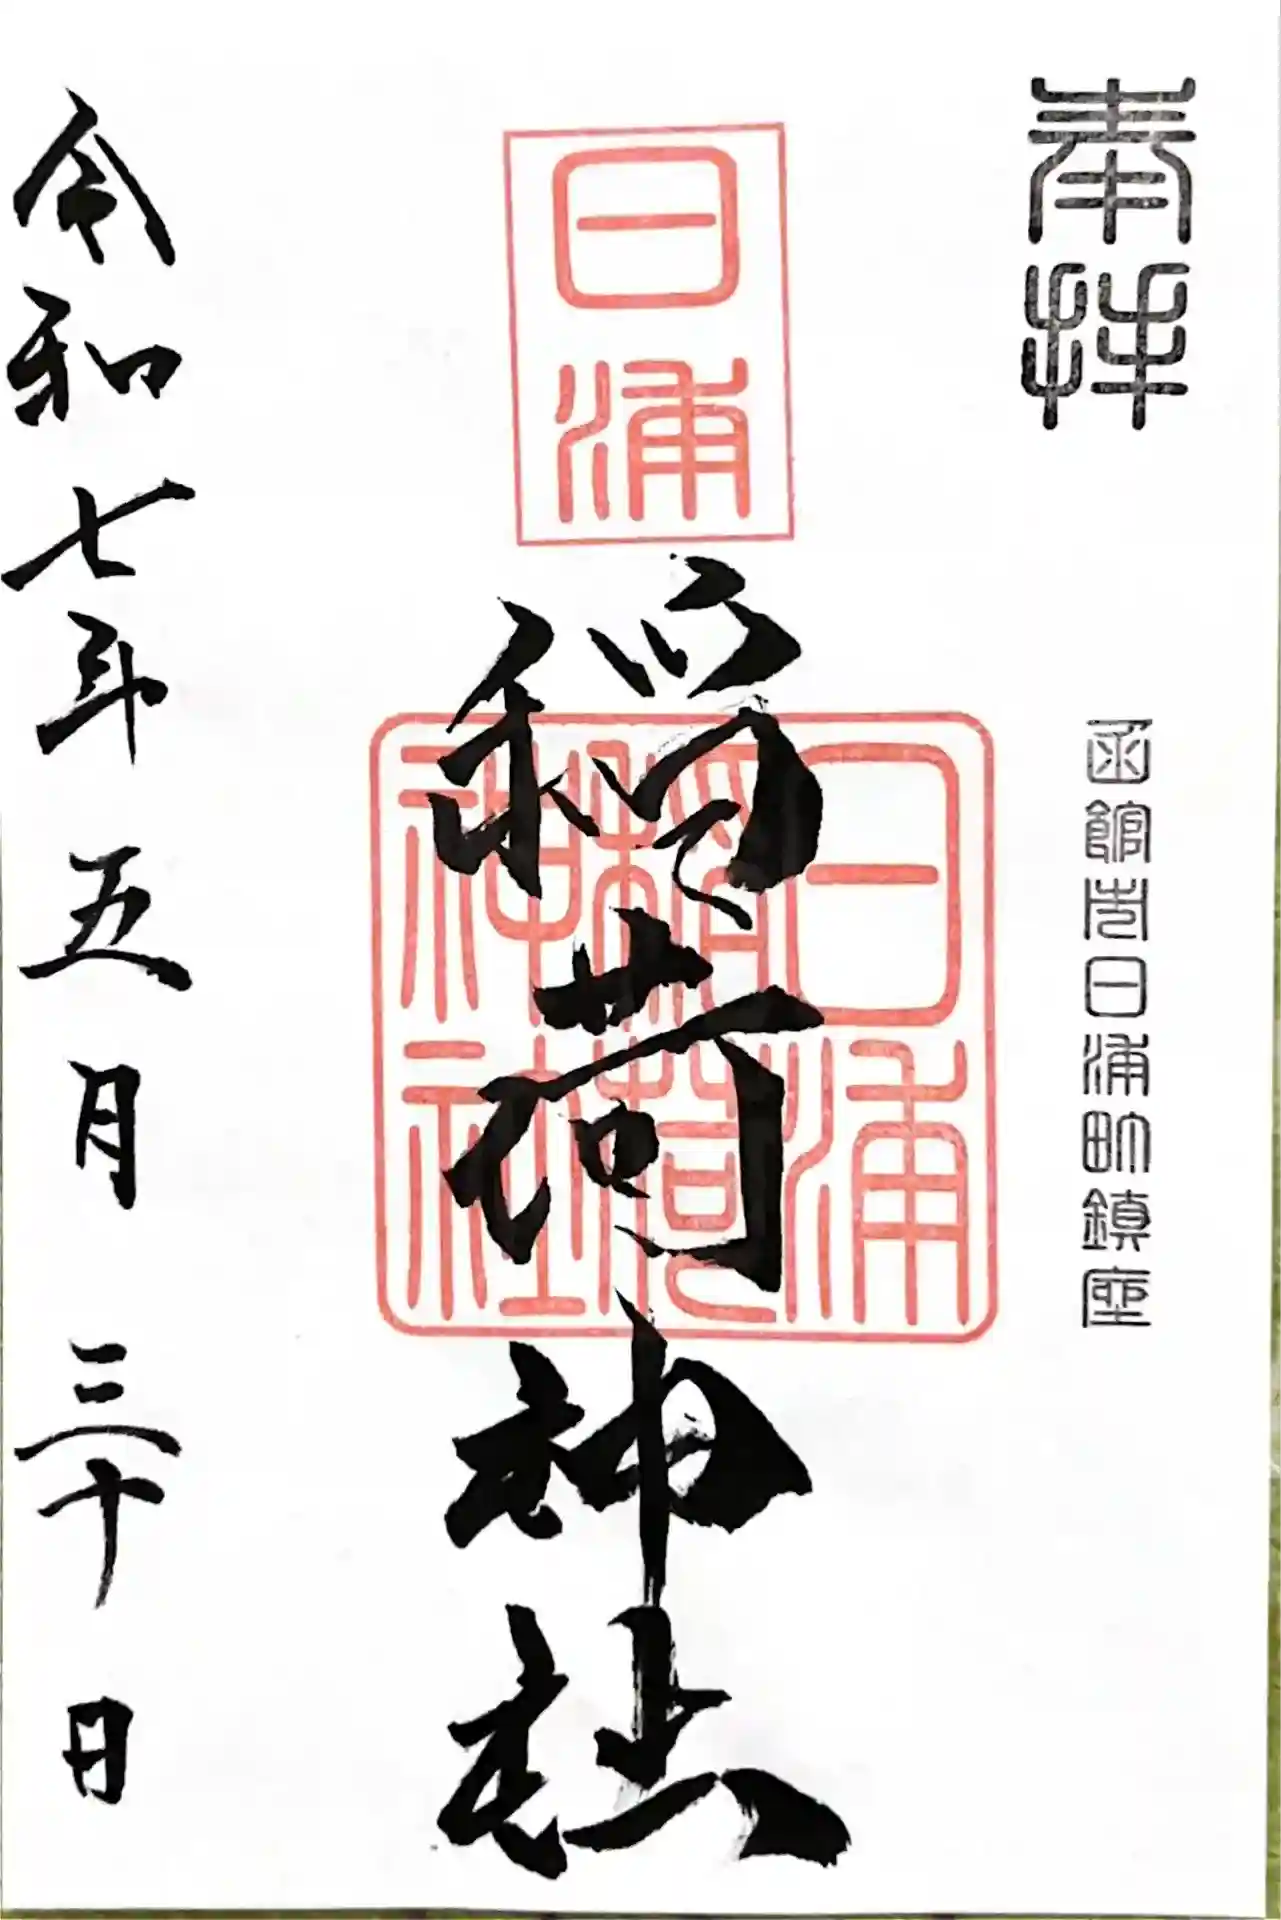 奉拝
函館市日浦町鎮座
日浦
稲荷神社
日浦
稲荷
神社
令和七年五月三十日